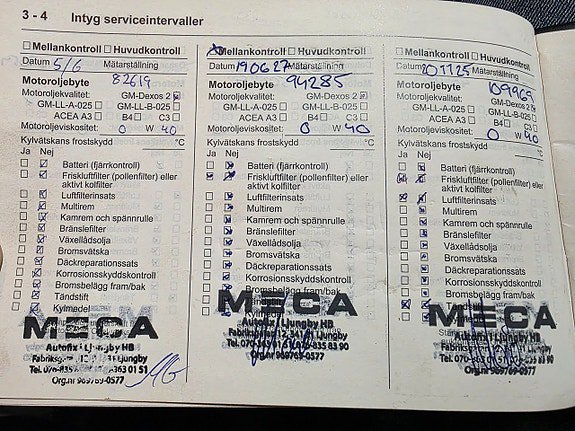 3 - 4 Intyg serviceintervaller
Mellankontroll Huvudkontroll
Datum 5/6 Mätarställning
Motoroljebyte 82619
Motoroljekvalitet: GM-Dexos 2
GM-LL-A-025 GM-LL-B-025
ACEA A3 B4 C3
Motoroljeviskositet: 0 W 40
Kylvätskans frostskydd °C
Ja Nej
Batteri (fjärrkontroll)
Friskluftfilter (pollenfilter) eller
aktivt kolfilter
Luftfilterinsats
Multirem
Kamrem och spännrulle
Bränslefilter
Växellådsolja
Bromsvätska
Däckreparationssats
Korrosionsskyddskontroll
Bromsbelägg fram/bak
Tändstift
Kylmedel
MECA
Autofix i Ljungby HB
Org.nr 969769-0577
Mellankontroll Huvudkontroll
Datum 190627 Mätarställning
Motoroljebyte 94285
Motoroljekvalitet: GM-Dexos 2
GM-LL-A-025 GM-LL-B-025
ACEA A3 B4 C3
Motoroljeviskositet: 0 W 40
Kylvätskans frostskydd °C
Ja Nej
Batteri (fjärrkontroll)
Friskluftfilter (pollenfilter) eller
aktivt kolfilter
Luftfilterinsats
Multirem
Kamrem och spännrulle
Bränslefilter
Växellådsolja
Bromsvätska
Däckreparationssats
Korrosionsskyddskontroll
Bromsbelägg fram/bak
MECA
Autofix i Ljungby HB
Org.nr 969769-0577
Mellankontroll Huvudkontroll
Datum 201125 Mätarställning
Motoroljebyte 109969
Motoroljekvalitet: GM-Dexos 2
GM-LL-A-025 GM-LL-B-025
ACEA A3 B4 C3
Motoroljeviskositet: 0 W 40
Kylvätskans frostskydd °C
Ja Nej
Batteri (fjärrkontroll)
Friskluftfilter (pollenfilter) eller
aktivt kolfilter
Luftfilterinsats
Multirem
Kamrem och spännrulle
Bränslefilter
Växellådsolja
Bromsvätska
Däckreparationssats
Korrosionsskyddskontroll
Bromsbelägg fram/bak
MECA
Org.nr 969769-0577